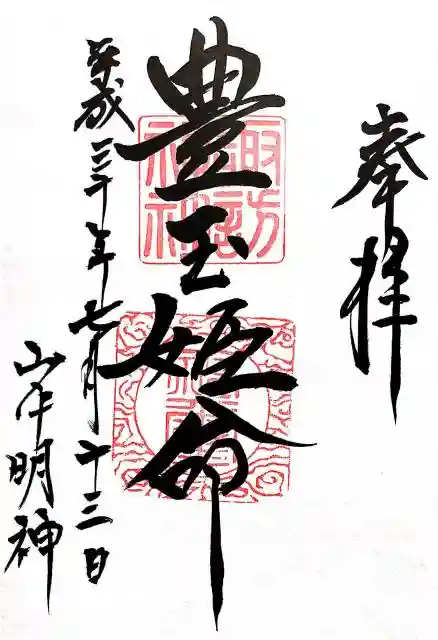 奉拝
豊玉姫命
平成三十年七月十三日
山中明神
諏訪神社